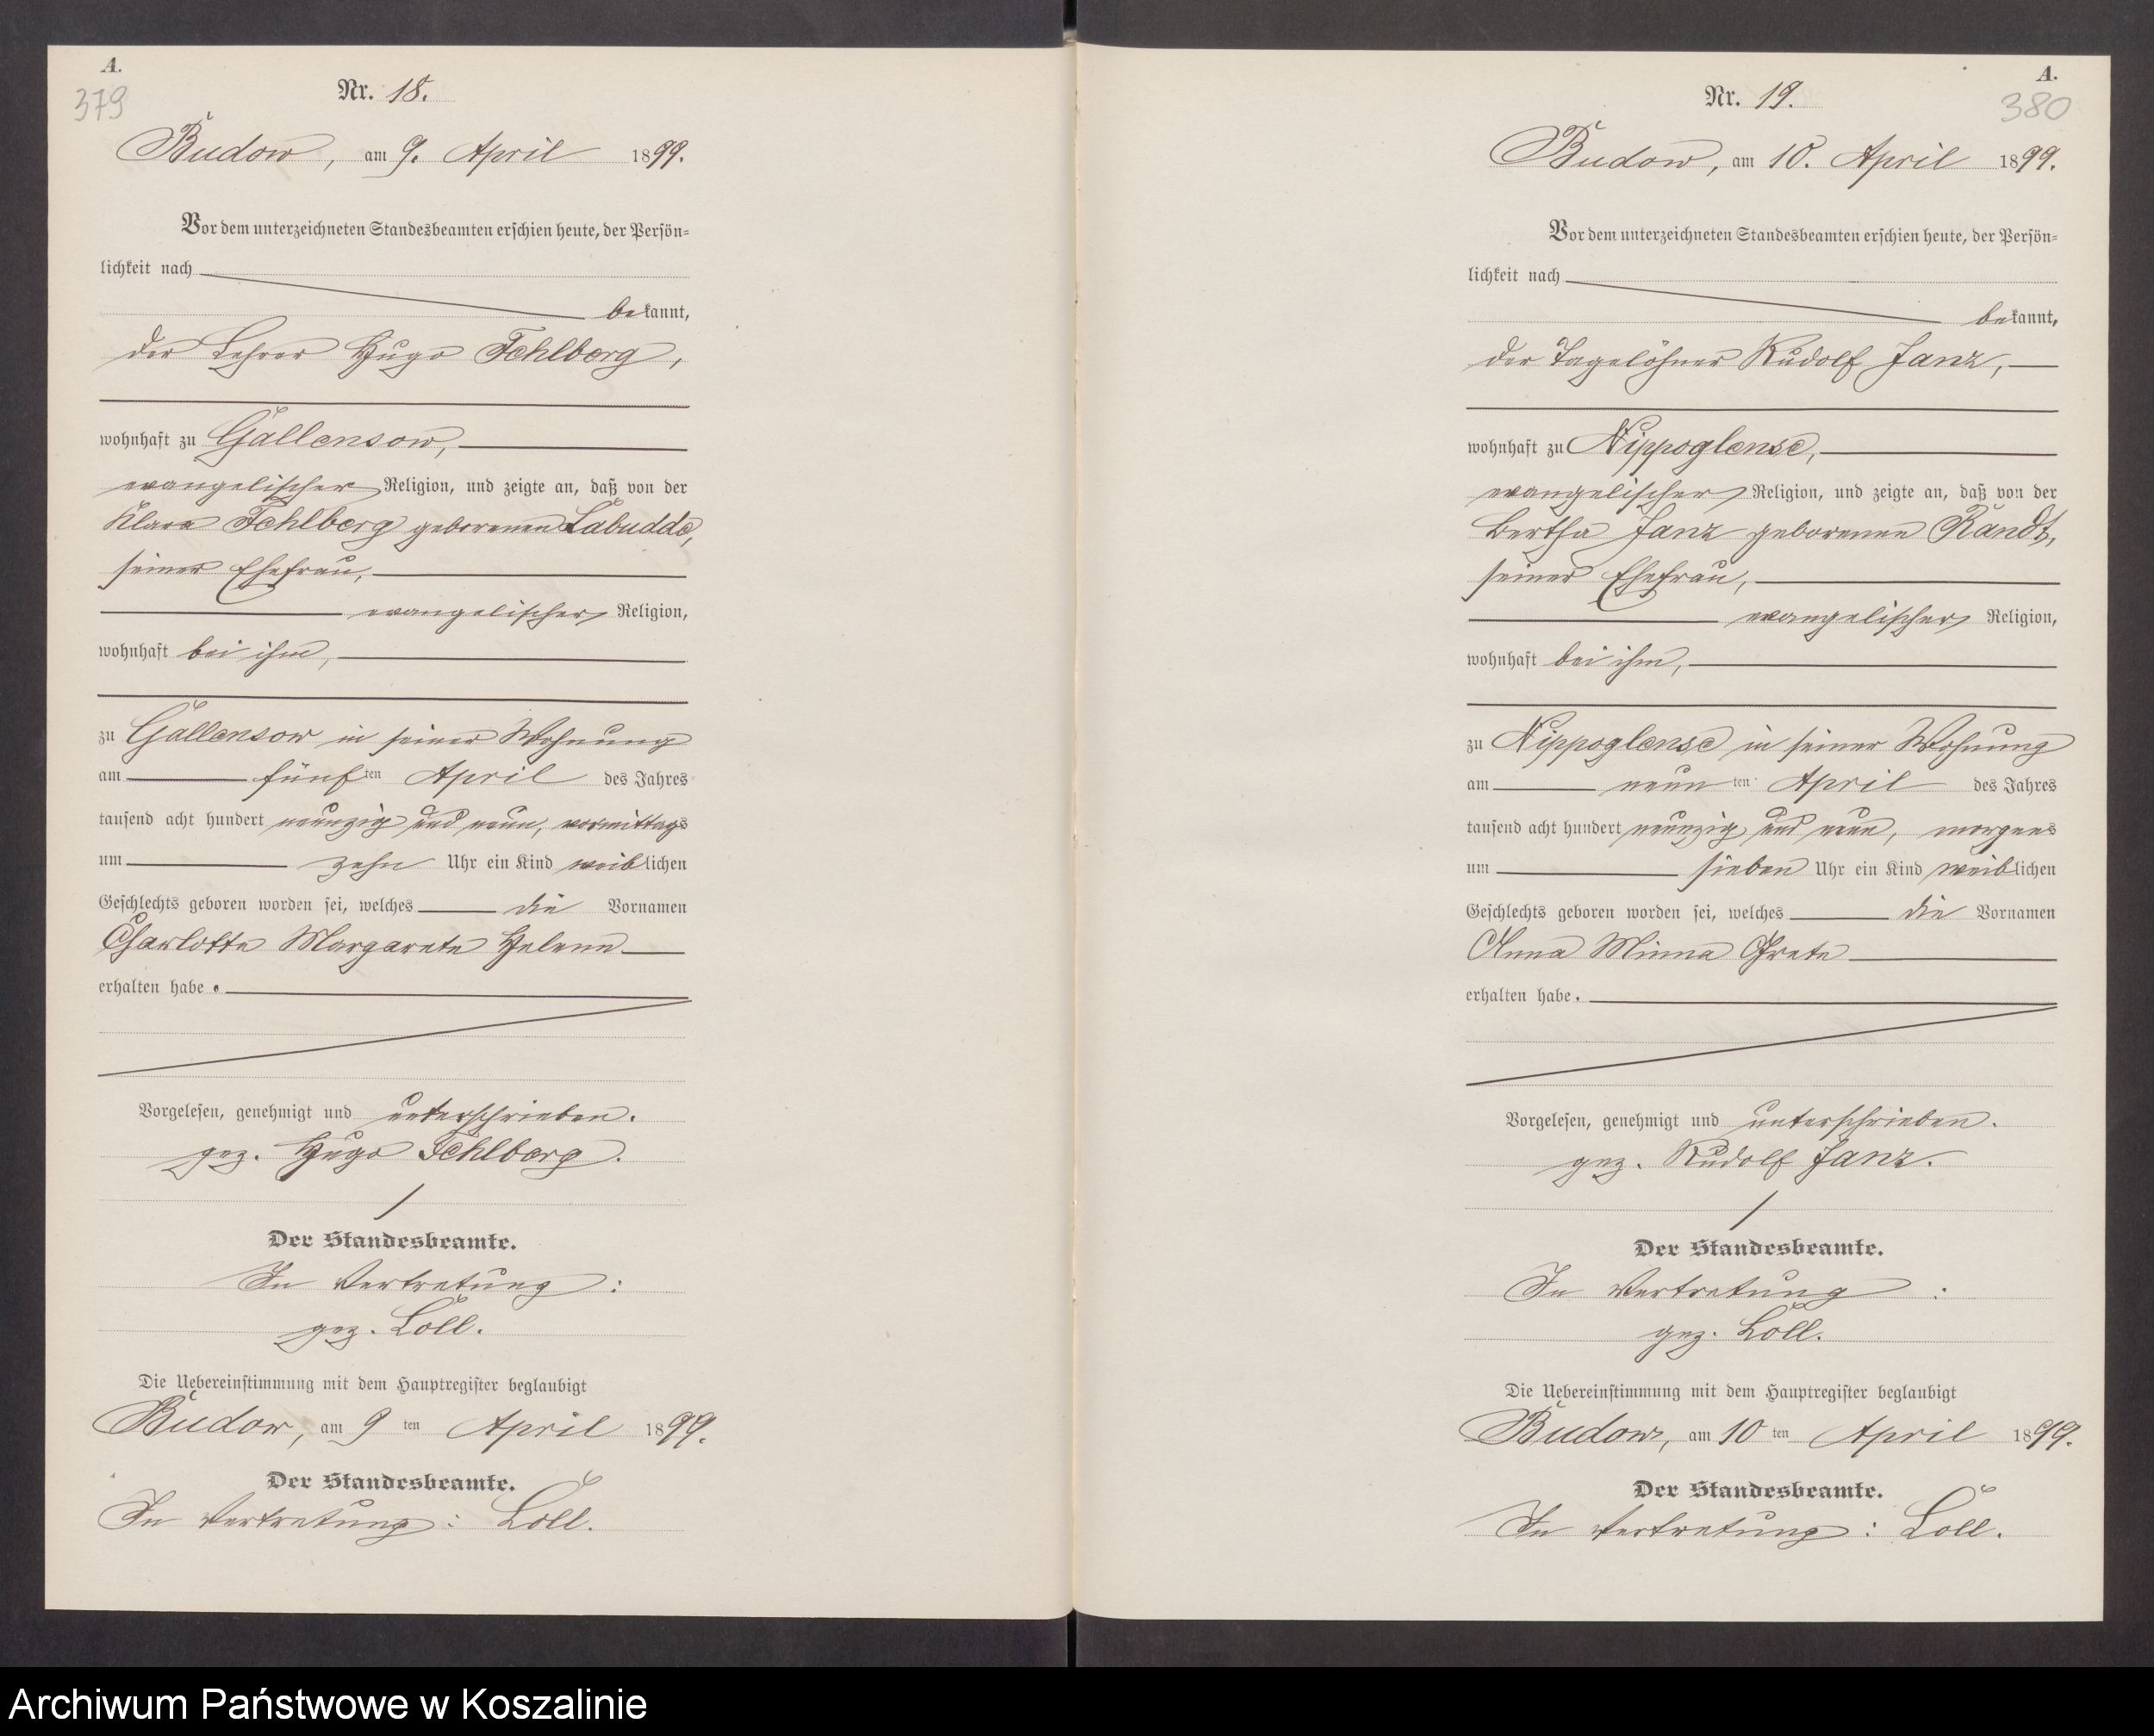 A.
379
Nr. 18.
Budow, am 9. April 1899.
Vor dem unterzeichneten Standesbeamten erschien heute, der Persön=
lichkeit nach
bekannt,
der Lehrer Hugo Fehlberg,
wohnhaft zu Gallensow,
evangelischer Religion, und zeigte an, daß von der
Klara Fehlberg geborenen Labudde,
seiner Ehefrau,
evangelischer Religion,
wohnhaft bei ihm,
zu Gallensow in seiner Wohnung
am fünften April des Jahres
tausend acht hundert neunzig und neun, vormittags
um zehn Uhr ein Kind weiblichen
Geschlechts geboren worden sei, welches die Vornamen
Charlotte Margarete Helene
erhalten habe.
Vorgelesen, genehmigt und unterschrieben.
gez. Hugo Fehlberg.
Der Standesbeamte.
In Vertretung:
gez. Loll.
Die Uebereinstimmung mit dem Hauptregister beglaubigt
Budow, am 9ten April 1899.
Der Standesbeamte.
In Vertretung: Loll.
A.
380
Nr. 19.
Budow, am 10. April 1899.
Vor dem unterzeichneten Standesbeamten erschien heute, der Persön=
lichkeit nach
bekannt,
der Tagelöhner Rudolf Janz,
wohnhaft zu Nippoglense,
evangelischer Religion, und zeigte an, daß von der
Bertha Janz geborenen Randt,
seiner Ehefrau,
evangelischer Religion,
wohnhaft bei ihm,
zu Nippoglense in seiner Wohnung
am neunten April des Jahres
tausend acht hundert neunzig und neun, morgens
um sieben Uhr ein Kind weiblichen
Geschlechts geboren worden sei, welches die Vornamen
Anna Minna Grete
erhalten habe.
Vorgelesen, genehmigt und unterschrieben.
gez. Rudolf Janz.
Der Standesbeamte.
In Vertretung:
gez. Loll.
Die Uebereinstimmung mit dem Hauptregister beglaubigt
Budow, am 10ten April 1899.
Der Standesbeamte.
In Vertretung: Loll.
Archiwum Państwowe w Koszalinie